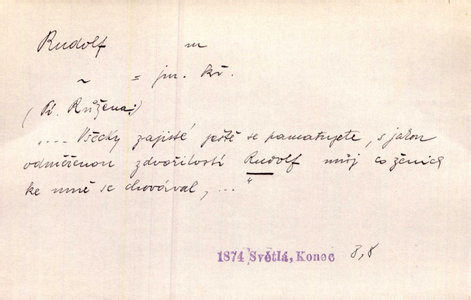 Rudolf m
~ = jm. kř.
(Pí. Růžena:)
.... Všecky zajisté ještě se pamatujete, s jakou
odměřenou zdvořilostí Rudolf můj co ženich
ke mně se choval, ... "
1874 Světlá, Konec 8,8